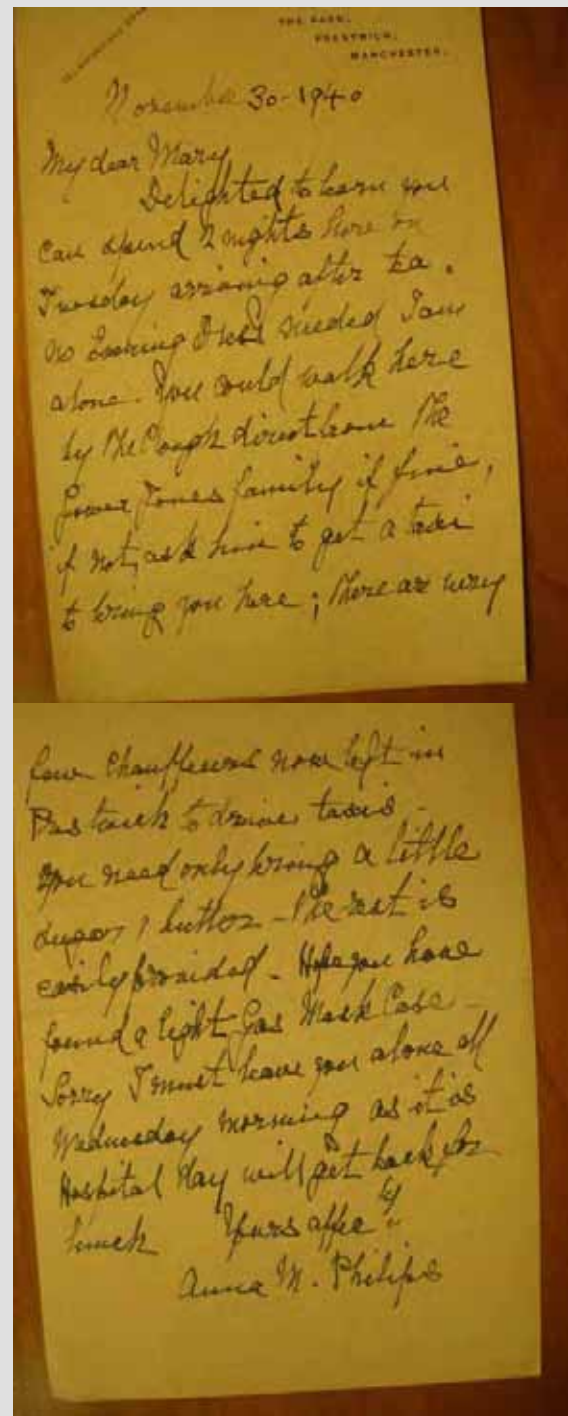 THE PARK,
PRESTWICH,
MANCHESTER.
November 30-1940
My dear Mary
Delighted to learn you
can spend 2 nights here on
Tuesday arriving after tea.
No Evening Dress needed I am
alone. You could walk here
by the Clough direct from the
Gower Jones family if fine,
if not, ask him to get a taxi
to bring you here; there are very
few Chauffeurs now left in
Prestwich to drive taxis -
You need only bring a little
sugar & butter - the rest is
easily provided - Hope you have
found a light Gas Mask Case -
Sorry I must leave you alone all
Wednesday morning as it is
Hospital Day will get back for
lunch Yours affec ly
Anna M. Philips